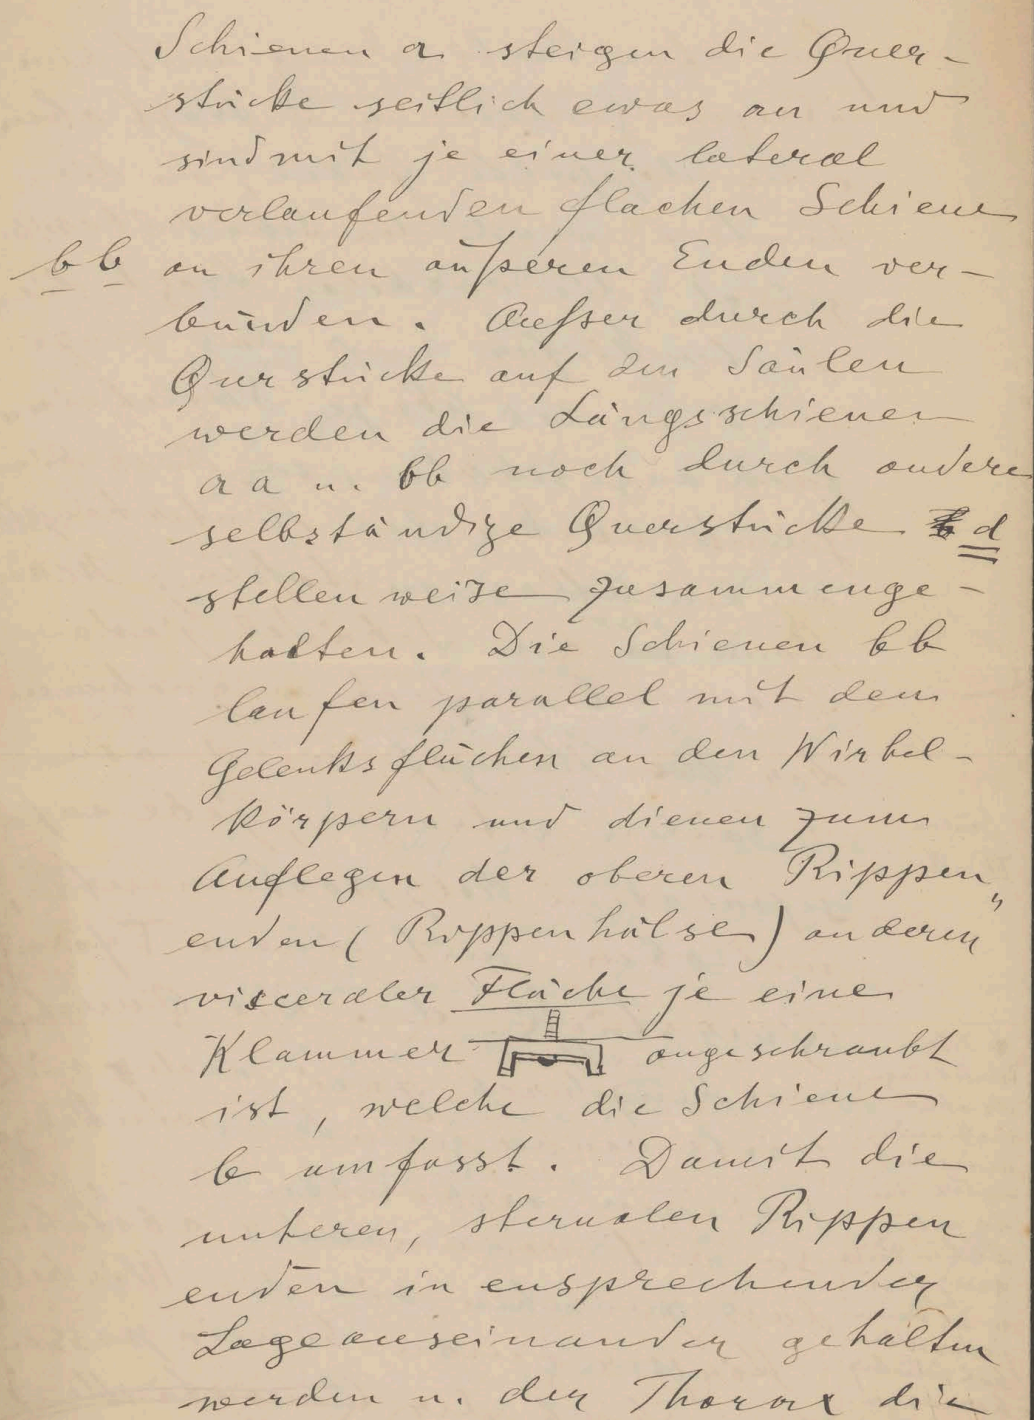 Schienen a steigen die Quer-
stücke seitlich ewas an und
sind mit je einer lateral
verlaufenden flachen Schiene
bb an ihren äußeren Enden ver-
bunden. Ausser durch die
Querstücke auf den Säulen
werden die Längsschienen
aa u. bb noch durch andere
selbständige Querstücke d
stellenweise zusammenge-
halten. Die Schienen bb
laufen parallel mit den
Gelenksflächen an den Wirbel-
körpern und dienen zum
Auflegen der oberen Rippen„
enden (Rippenhälse) an deren
visceraler Fläche je eine
Klammer angeschraubt
ist, welche die Schiene
b umfasst. Damit die
unteren, sternalen Rippen
enden in ensprechender
Lage auseinander gehalten
werden u. der Thorax die